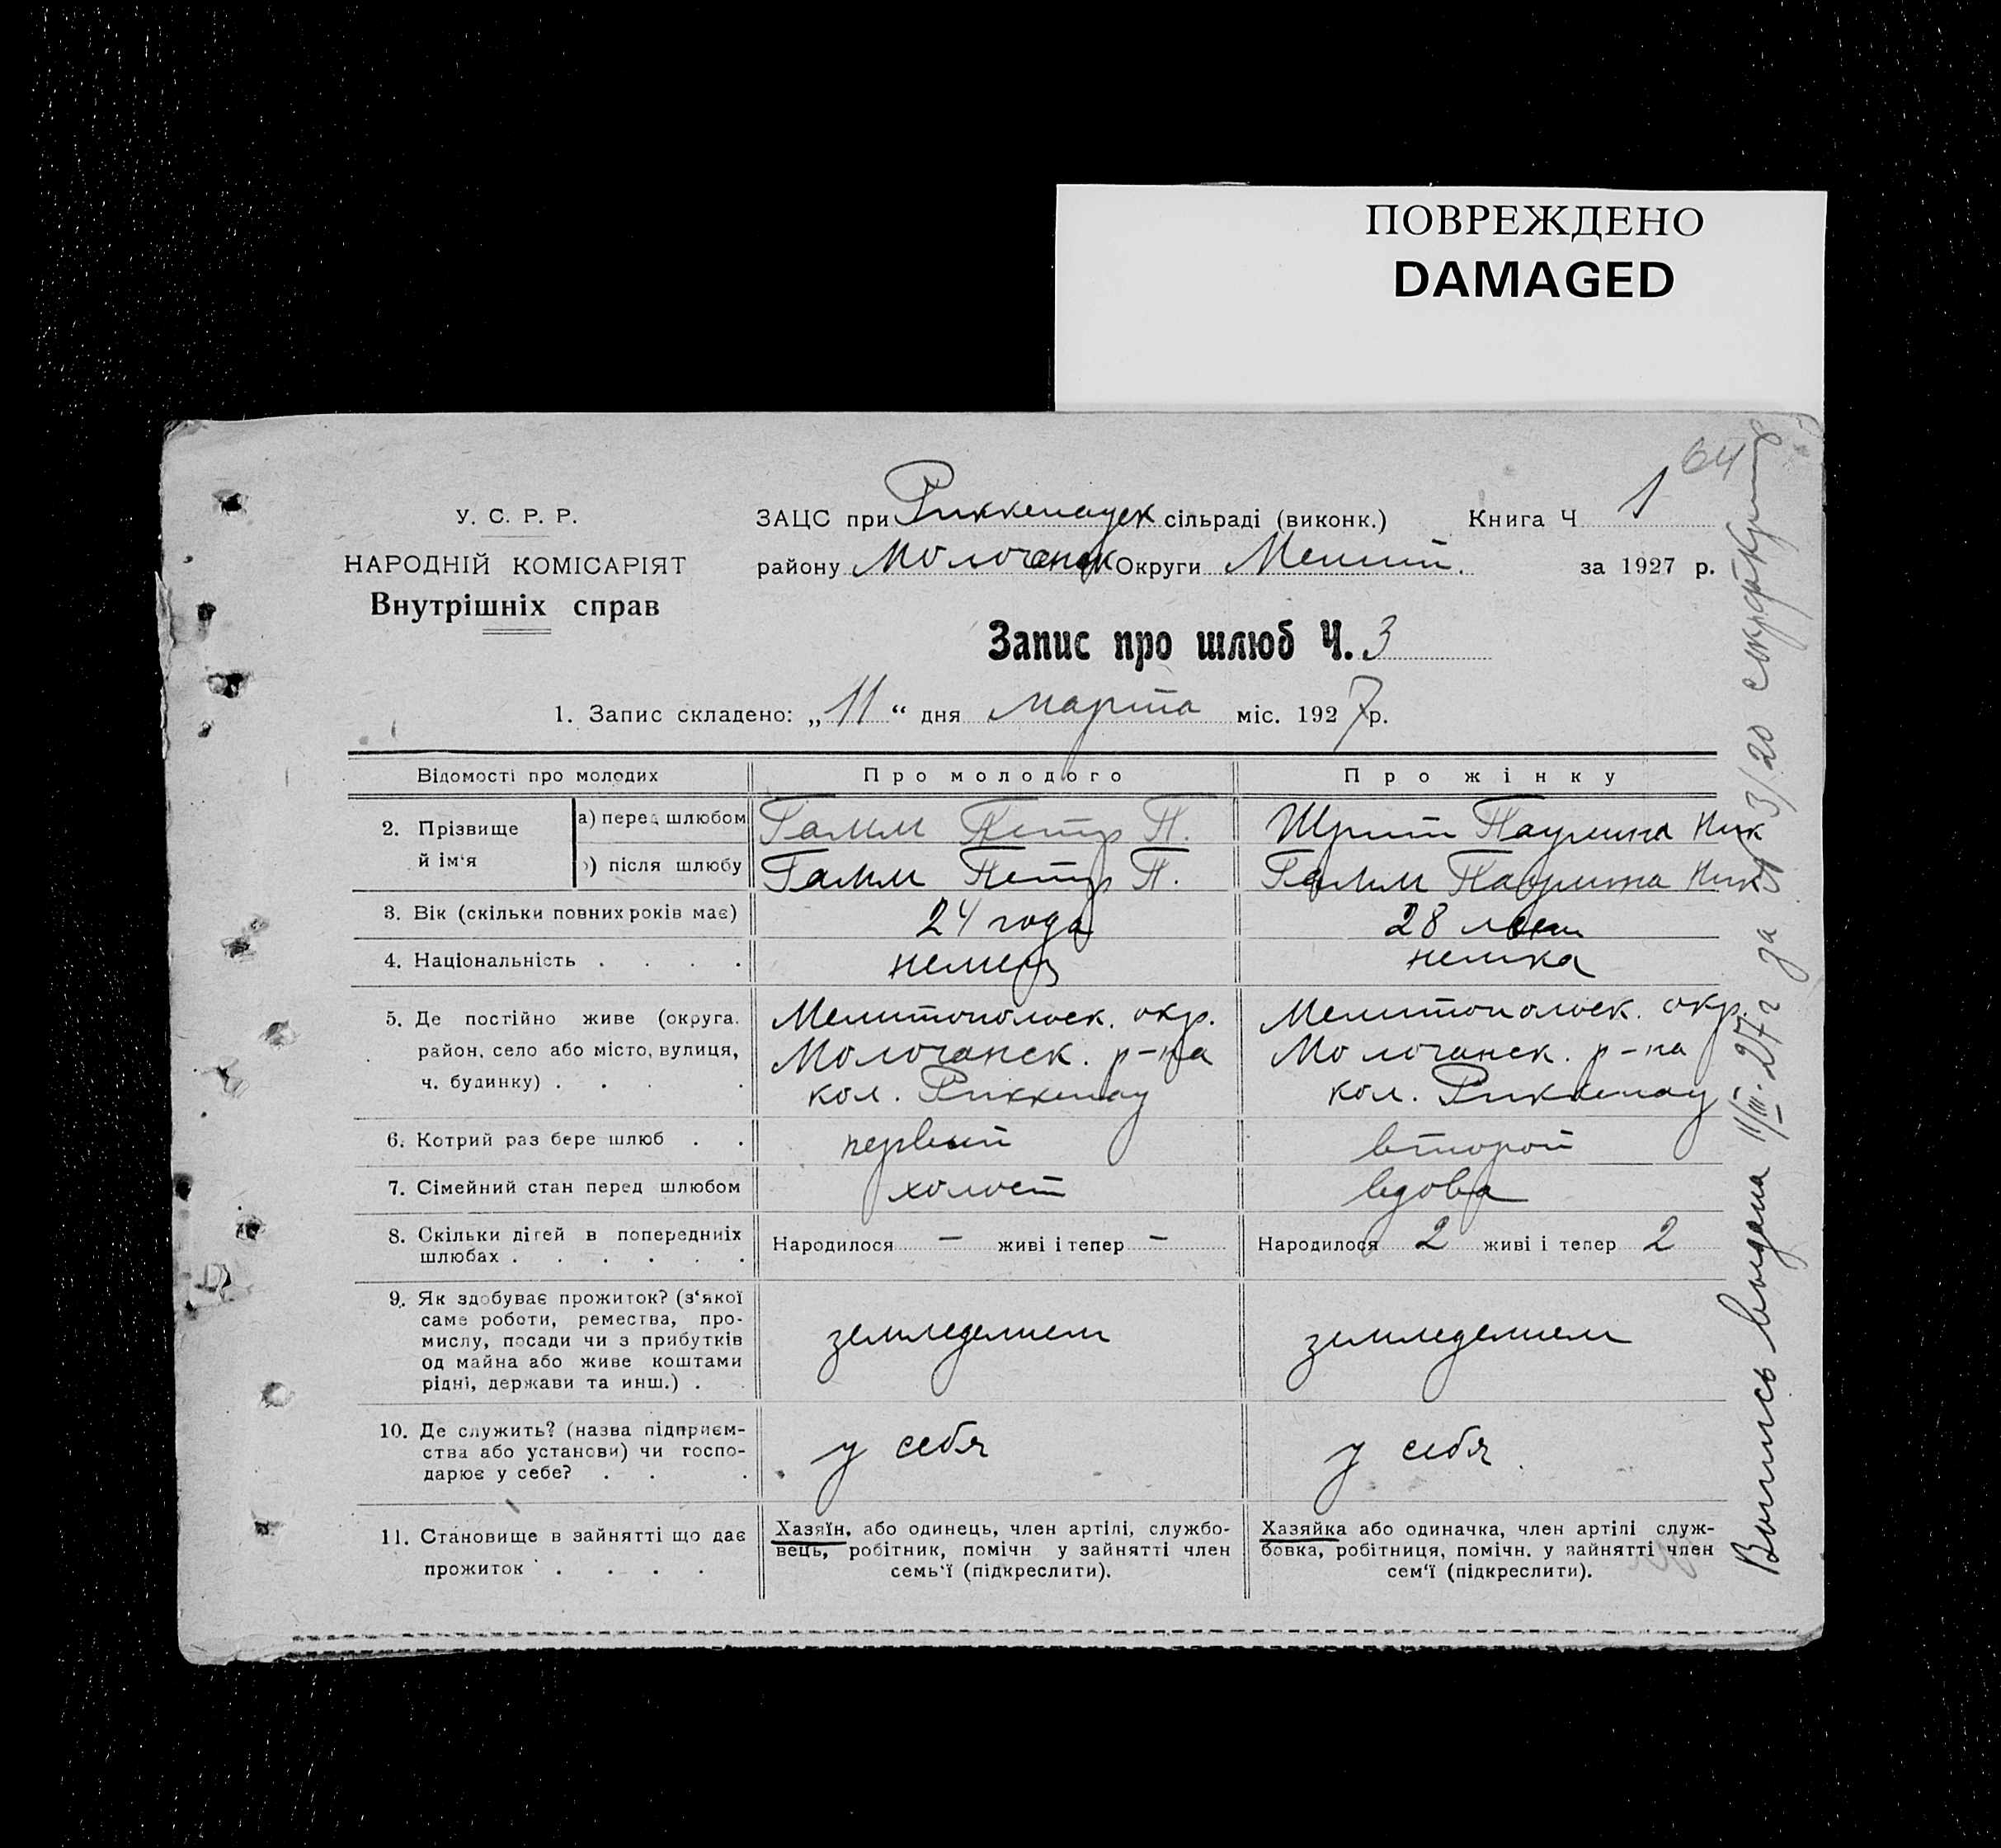 ПОВРЕЖДЕНО
DAMAGED
64
У. С. Р. Р.
НАРОДНІЙ КОМІСАРІЯТ
Внутрішніх справ
ЗАЦС при Риккенауск сільраді (виконк.) Книга Ч 1
району Молочанск Округи Мелит. за 1927 р.
Запис про шлюб Ч. 3
1. Запис складено: „11“ дня марта міс. 1927 р.
Відомості про молодих Про молодого Про жінку
2. Прізвище й ім‘я
а) перед шлюбом Гамм Петр П. Шрит Паулина Ник
б) після шлюбу Гамм Петр П. Гамм Паулина Ник
3. Вік (скільки повних років має) 24 года 28 лет
4. Національність . . . . немец немка
5. Де постійно живе (округа, район, село або місто, вулиця, ч. будинку) . . . .
Мелитопольск. окр. Мелитопольск. окр.
Молочанск. р-на Молочанск. р-на
кол. Риккенау кол. Риккенау
6. Котрий раз бере шлюб . . первый второй
7. Сімейний стан перед шлюбом холост вдова
8. Скільки дітей в попередніх шлюбах . . . . . . Народилося – живі і тепер – Народилося 2 живі і тепер 2
9. Як здобуває прожиток? (з‘якої
саме роботи, ремества, про-
мислу, посади чи з прибутків
од майна або живе коштами
рідні, держави та инш.) .
земледелием земледелием
10. Де служить? (назва підприєм-
ства або установи) чи госпо-
дарює у себе? . . .
у себя у себя
11. Становище в зайнятті що дає
прожиток . . . .
Хазяїн, або одинець, член артілі, службо-
вець, робітник, помічн у зайнятті член
семь‘ї (підкреслити).
Хазяйка або одиначка, член артілі служ-
бовка, робітниця, помічн. у зайнятті член
сем‘ї (підкреслити).
Выпись выдана 11/III-27 г за № 3/20